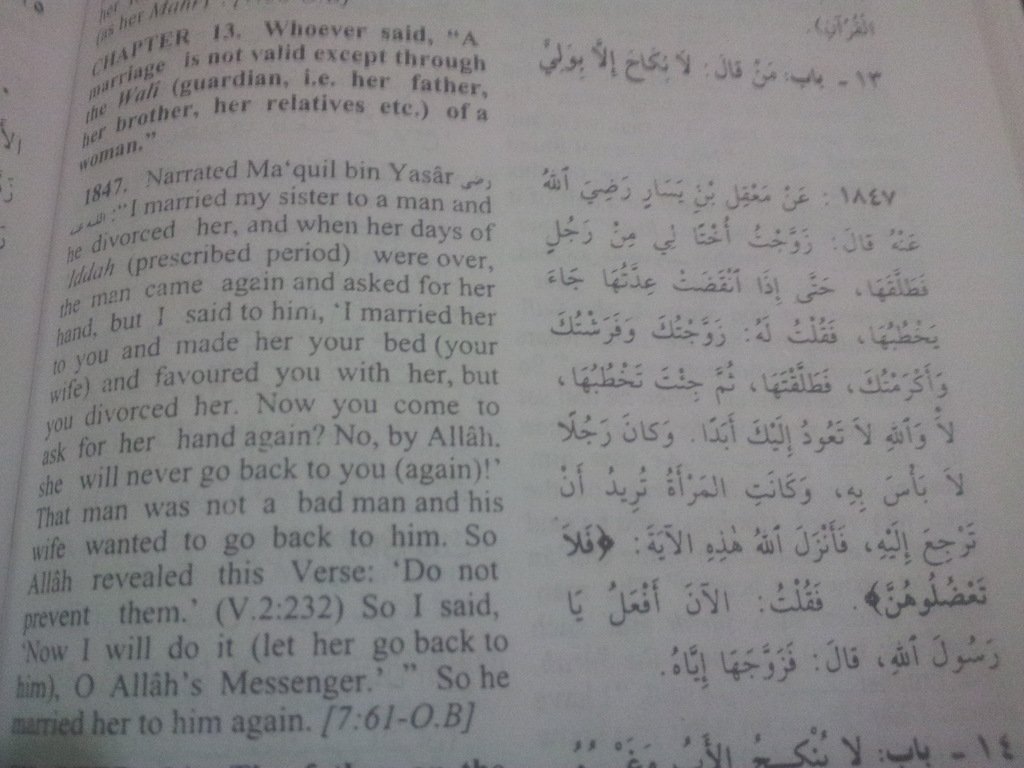 (as her Mahr)'.
CHAPTER 13. Whoever said, “A
marriage is not valid except through
the Wali (guardian, i.e. her father,
her brother, her relatives etc.) of a
woman.”
1847. Narrated Ma‘quil bin Yasâr رضي
الله عنه: “I married my sister to a man and
he divorced her, and when her days of
Iddah (prescribed period) were over,
the man came again and asked for her
hand, but I said to him, ‘I married her
to you and made her your bed (your
wife) and favoured you with her, but
you divorced her. Now you come to
ask for her hand again? No, by Allâh,
she will never go back to you (again)!’
That man was not a bad man and his
wife wanted to go back to him. So
Allâh revealed this Verse: ‘Do not
prevent them.’ (V.2:232) So I said,
‘Now I will do it (let her go back to
him), O Allâh’s Messenger.’ ” So he
married her to him again. [7:61-O.B]
القُرْآنِ).
١٣ - باب: مَنْ قَالَ: لاَ نِكَاحَ إِلاَّ بِوَلِيٍّ
١٨٤٧ : عَنْ مَعْقِلِ بْنِ يَسَارٍ رَضِيَ ٱللهُ
عَنْهُ قَالَ: زَوَّجْتُ أُخْتًا لِي مِنْ رَجُلٍ
فَطَلَّقَهَا، حَتَّى إِذَا ٱنْقَضَتْ عِدَّتُهَا جَاءَ
يَخْطُبُهَا، فَقُلْتُ لَهُ: زَوَّجْتُكَ وَفَرَشْتُكَ
وَأَكْرَمْتُكَ، فَطَلَّقْتَهَا، ثُمَّ جِئْتَ تَخْطُبُهَا،
لاَ وَٱللهِ لاَ تَعُودُ إِلَيْكَ أَبَدًا. وَكَانَ رَجُلًا
لاَ بَأْسَ بِهِ، وَكَانَتِ المَرْأَةُ تُرِيدُ أَنْ
تَرْجِعَ إِلَيْهِ، فَأَنْزَلَ ٱللهُ هٰذِهِ الآيَةَ: ﴿فَلاَ
تَعْضُلُوهُنَّ﴾. فَقُلْتُ: الآنَ أَفْعَلُ يَا
رَسُولَ ٱللهِ، قَالَ: فَزَوَّجَهَا إِيَّاهُ.
١٤ - باب: لاَ يُنْكِحُ الأَبُ وَغَيْرُهُ